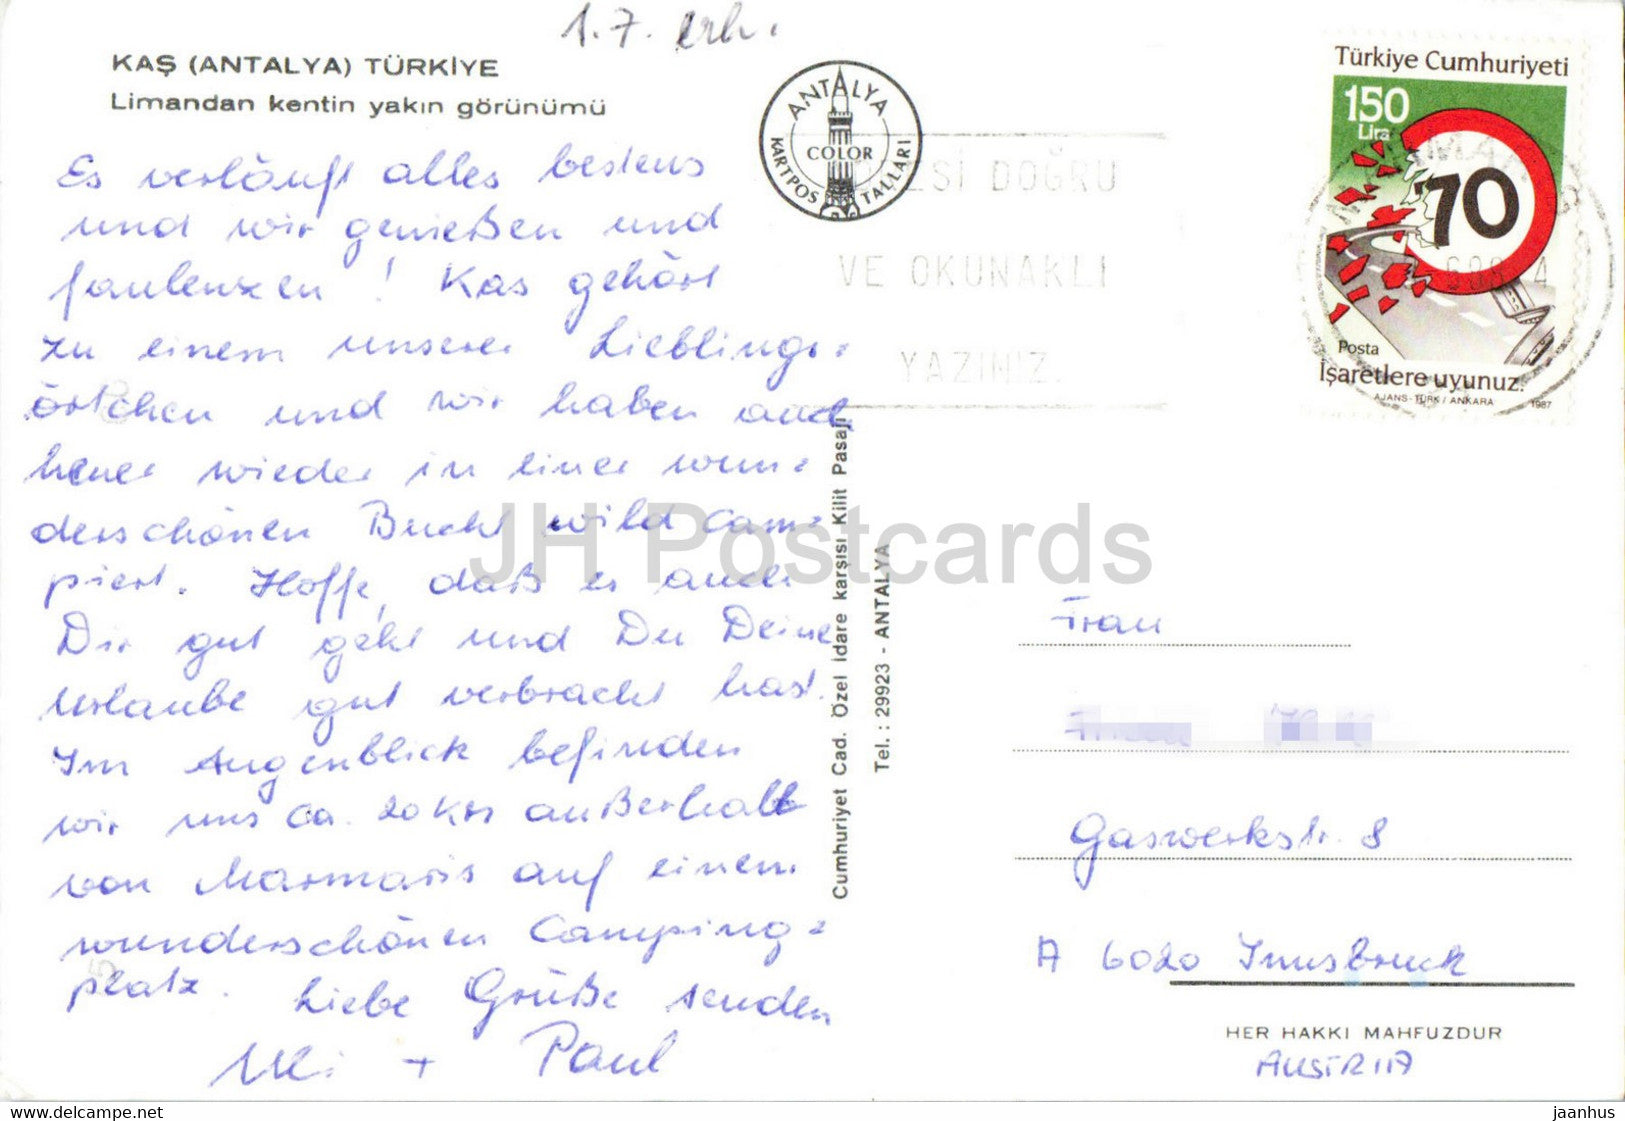 1.7. erh.
KAŞ (ANTALYA) TÜRKİYE
Limandan kentin yakın görünümü
Es verläuft alles bestens
und wir genießen und
faulenzen! Kas gehört
zu einem unserer Lieblings-
örtchen und wir haben auch
heuer wieder in einer wun-
derschönen Bucht wild cam-
piert. Hoffe, daß es auch
Dir gut geht und Du Deine
Urlaube gut verbracht hast.
Im Augenblick befinden
wir uns ca. 20 km außerhalb
von Marmaris auf einem
wunderschönen Camping-
platz. Liebe Grüße senden
Uli + Paul
ANTALYA
COLOR
KARTPOSTALLARI
DOĞRU
VE OKUNAKLI
YAZINIZ.
Türkiye Cumhuriyeti
150
Lira
70
Posta
İşaretlere uyunuz.
AJANS-TÜRK / ANKARA 1987
Cumhuriyet Cad. Özel İdare karşısı Kilit Pasajı
Tel. : 29923 - ANTALYA
JH Postcards
Frau
Gaswerkstr. 8
A 6020 Innsbruck
HER HAKKI MAHFUZDUR
AUSTRIA
www.delcampe.net
jaanhus